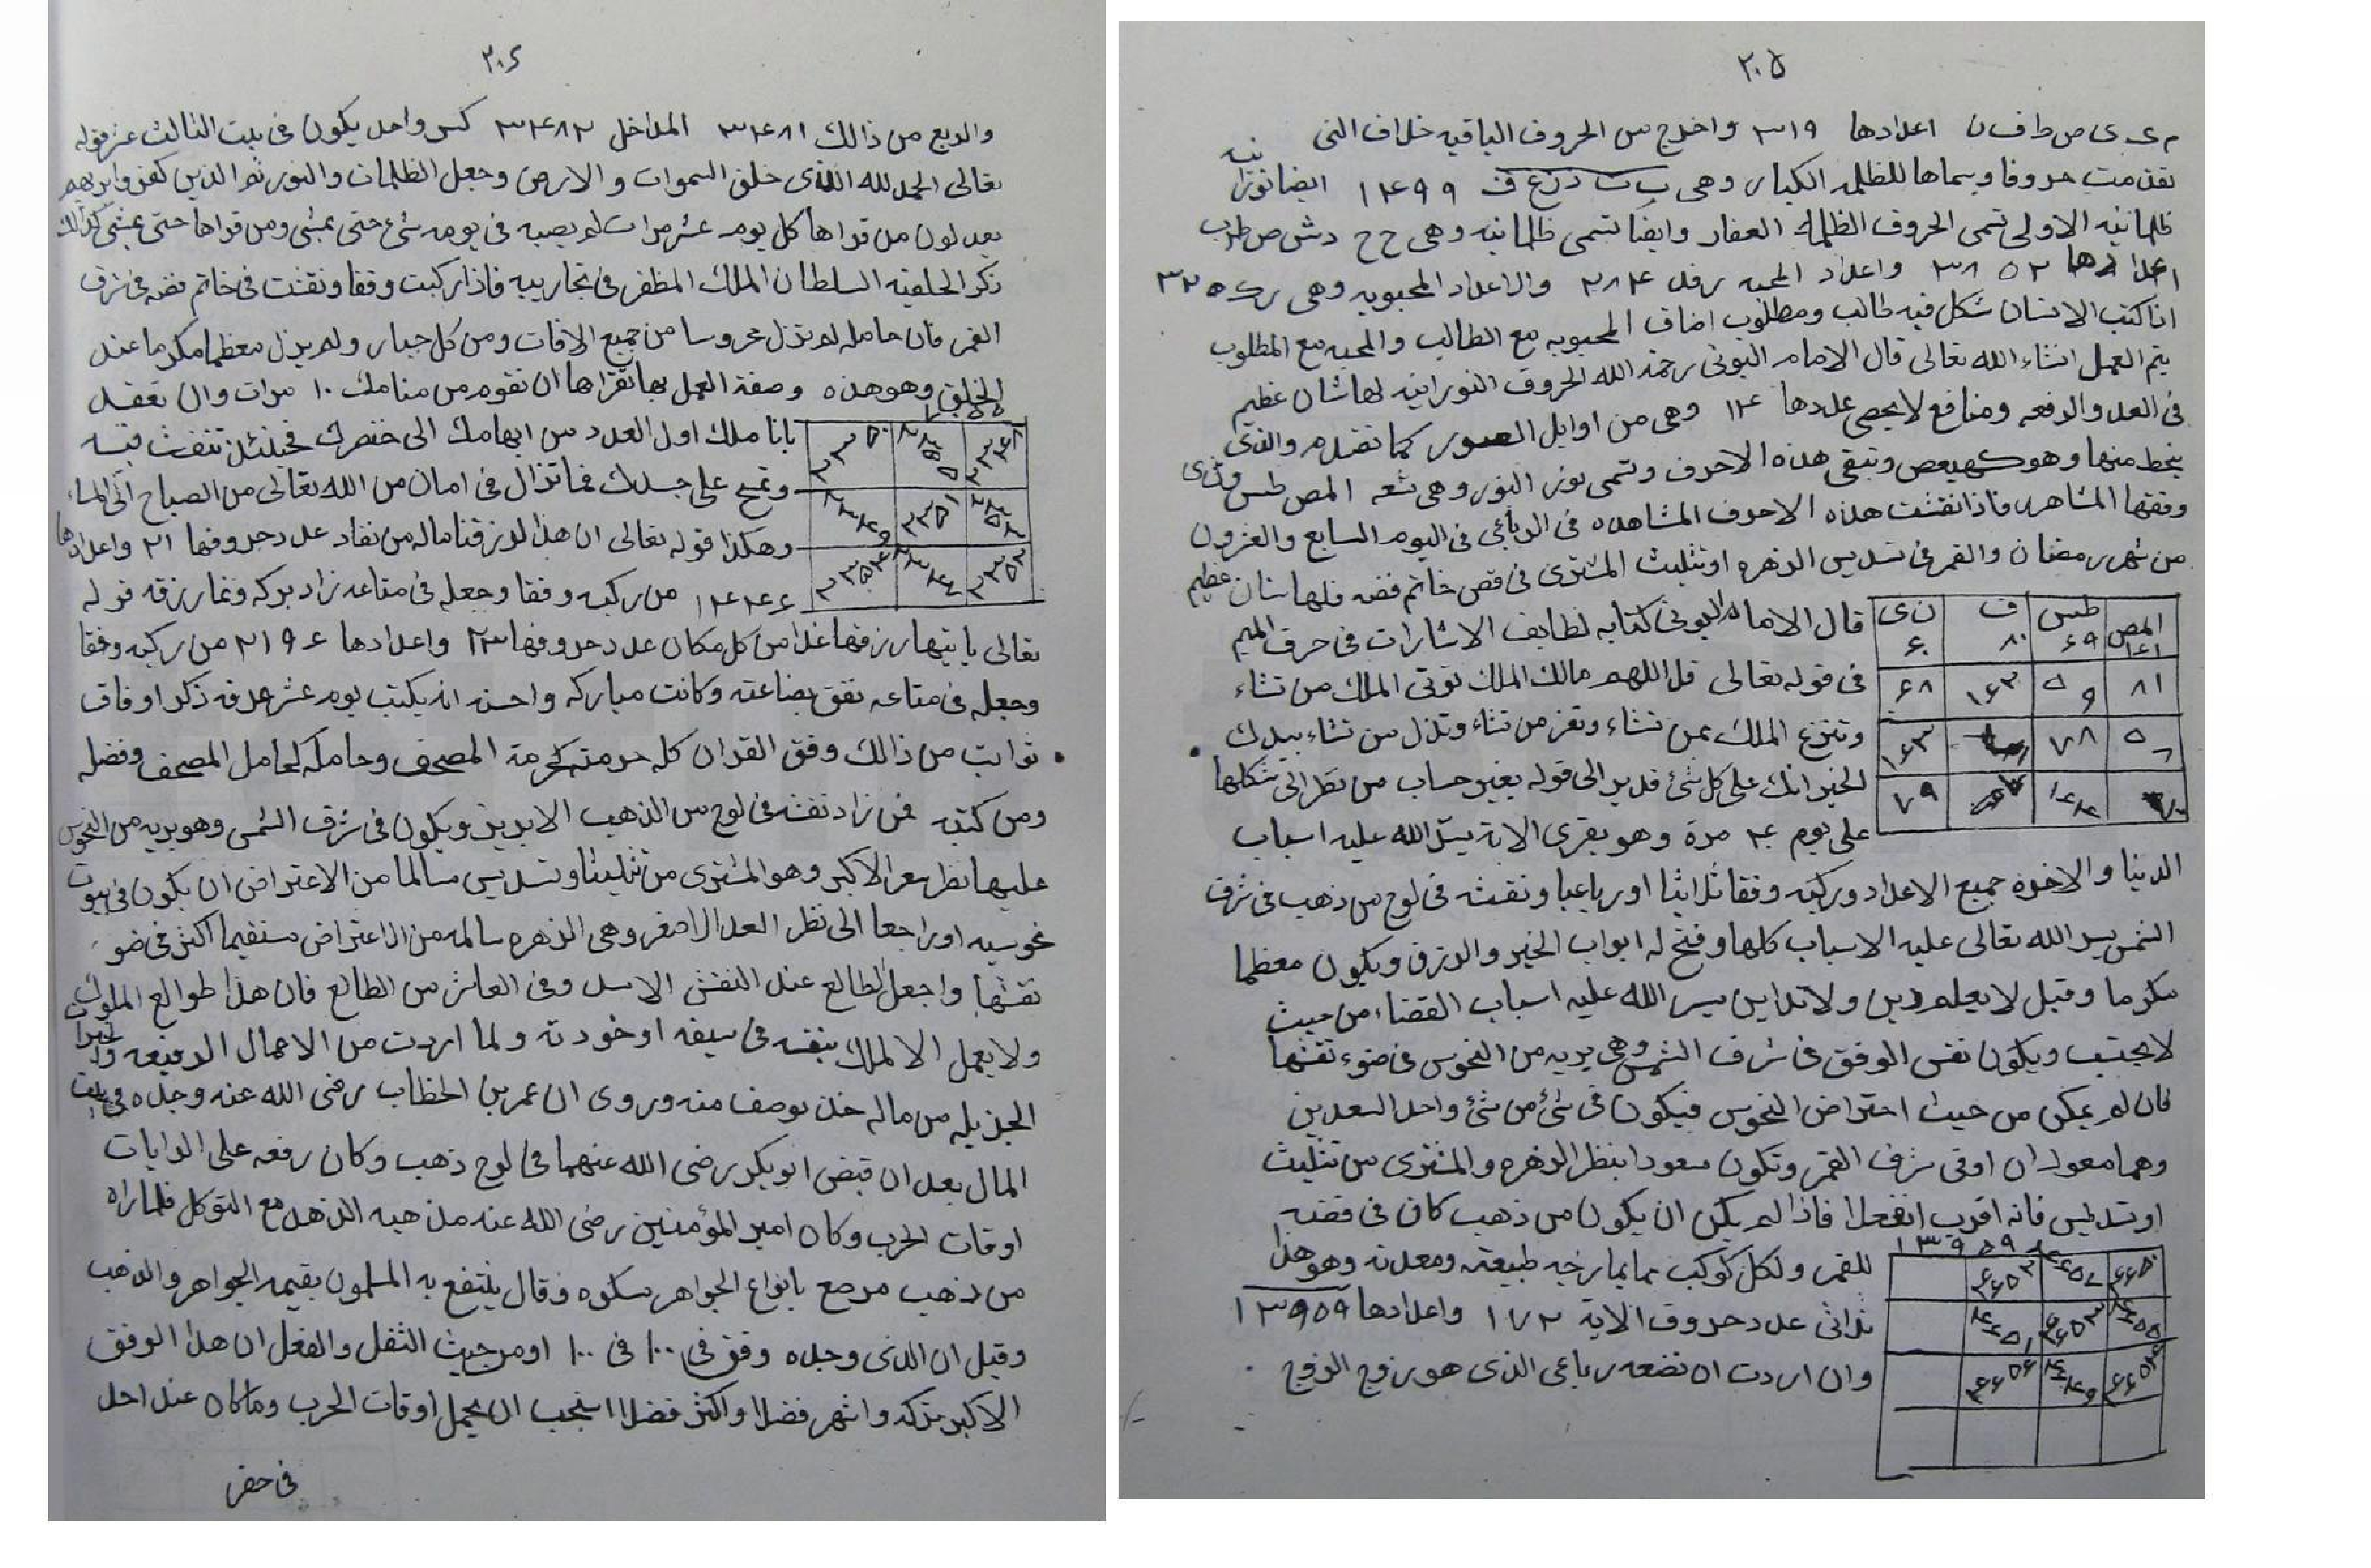 ٢٠٥
م ی ی ص ط ف ن اعدادها ٣١٩ واخرج من الحروف الباقيه خلاف التى
تقدمت حروفا وسماها للظلمه الكبار وهى ١٤٩٩ ايضا نورانيه
ظلمانيه الاولى تسمى الحروف الظلمانيه الصغار وايضا تسمى ظلمانيه وهى ح ح
اعدادها ٣٨٥٢ واعداد المحبه رفد ٢٨٤ والاعداد المحبوبه وهى رك
اذا كتب الانسان شكل فيه طالب ومطلوب اضاف المحبوبه مع الطالب والمحبه مع المطلوب
يتم العمل انشاء الله تعالى قال الامام البونى رحمة الله الحروف النورانيه لها شان عظيم
فى العد والرفعه ومنافع لا يحصى عددها ١٤ وهى من اوايل السور كما تقدم والذى
يخط منها وهو كهيعص وتبقى هذه الاحرف وتسمى نور النور وهى تسعه المص طس
وفقها المشاهر فاذا نقشت هذه الاحرف المشاهده فى الرباعى فى اليوم السابع والعشرون
من شهر رمضان والقمر فى تسديس الزهره او تثليث المشترى فى فص خاتم فضه فلها شان عظيم
المص ١٦١ طس ٦٩ ف ٨٠ ن ى ٦٠
٨١ ٥٩ ١٦٣ ٦٨
٧٨ ١٦٣
٧٩
قال الامام البونى كتابه لطايف الاشارات فى حرف الميم
فى قوله تعالى قل اللهم مالك الملك توتى الملك من تشاء
وتنزع الملك ممن تشاء وتعز من تشاء وتذل من تشاء بيدك
الخير انك على كل شئ قدير الى قوله بغير حساب من نظر الى شكلها
على يوم ٤٠ مرة وهو يقرى الاية يسر الله عليه اسباب
الدنيا والاخره جميع الاعداد وركبه وفقا ثلاثيا او رباعيا ونقشه فى لوح من ذهب فى شرف
الشمس يسر الله تعالى عليه الاسباب كلها وفتح له ابواب الخير والرزق ويكون معظما
مكرما وقيل لا يعلم دين ولا تداين يسر الله عليه اسباب القضاء من حيث
لا يحتسب ويكون نقش الوفق فى شرف الشمس وهى بريه من النحوس فى ضوء نقشها
فان لم يمكن من حيث احتراض النحوس فيكون فى شئ من شئ واحد السعدين
وهما معودان اوفى شرف القمر وتكون سعودا بنظر الزهره والمشترى من تثليث
او تسديس فانه اقرب انفعلا فاذا لم يكن ان يكون من ذهب كان فى فضه
١٣٩٥٩
٤٦٥٠ ٤٦٥٣
٤٦٥٣ ٤٦٥١
٤٦٤٩
للقمر ولكل كوكب بما يمازجه طبيعته ومعدنه وهو هذا
ثلاثى عدد حروف الاية ١٧٢ واعدادها ١٣٩٥٩
وان اردت ان تضعه رباعى الذى هو زوج الزوج
٢٠٦
والربع من ذالك ٣٤٨١ المداخل ٣٤٨٢ كسر واحد يكون فى بيت الثالث عشر قوله
تعالى الحمد لله الذى خلق السموات والارض وجعل الظلمات والنور ثم الذين كفروا بربهم
يعدلون من قراها كل يوم عشر مرات لم يصبه فى يومه شئ حتى يمسى ومن قراها حتى يمسى كذالك
ذكر الخليفه السلطان الملك المظفر فى تجاريبه فاذا ركبت وفقا ونقشت فى خاتم فضه فى شرف
القمر فان حامله لم تزل محروسا من جميع الافات ومن كل جبار ولم يزل معظما مكرما عند
الخلق وهو هذه وصفة العمل بها تقراها ان تقوم من منامك ١٠ مرات وان تعقد
٢٣٥٠
٢٣٥١ ٢٣٤٩
٢٣٥٣
باناملك اول العدد من ابهامك الى خنصرك فحينئذ تنفث فيه
وتمسح على جسدك فما تزال فى امان من الله تعالى من الصباح الى المساء
وهكذا قوله تعالى ان هذا لرزقنا ماله من نفاد عدد حروفها ٢١ واعدادها
١٤٤٦ من ركبه وفقا وجعله فى متاعه زاد بركه ونما رزقه قوله
تعالى ياتيها رزقها غدا من كل مكان عدد حروفها ٢٣ واعدادها ٢١٩٤ من ركبه وفقا
وجعله فى متاعه نفق بضاعته وكانت مباركه واحسنه انه يكتب يوم عشر عرفه ذكر اوفاق
تواتت من ذالك وفق القران كله حرمته كحرمة المصحف وحامله كحامل المصحف وفضله
ومن كتبه فمن زاد نقشه فى لوح من الذهب الابريز ويكون فى شرف الشمس وهو بريه من النحوس
عليها نظر سعد الاكبر وهو المشترى من تثليث او تسديس سالما من الاعتراض ان يكون فى بيوت
نحوسيه او راجعا الى نظر السعد الاصغر وهى الزهره سالمه من الاعتراض مستقيما اكثر فى ضو
نقشها واجعل الطالع عند النقش الاسد وفى العاشر من الطالع فان هذا طوالع الملوك
ولا يعمل الا لملك ينقشه فى سيفه او خودته ولما اردت من الاعمال الرفيعه والخيرات
الجزيله من ماله حد يوصف منه وروى ان عمر بن الخطاب رضى الله عنه وجده فى بيت
المال بعد ان قبض ابو بكر رضى الله عنهما فى لوح ذهب وكان رفعه على الرايات
اوقات الحرب وكان امير المؤمنين رضى الله عنه مذهبه الزهد مع التوكل فلما راه
من ذهب مرصع بانواع الجواهر سكوه وقال ينتفع به المسلمون بقيمه الجواهر والذهب
وقيل ان الذى وجده وفق فى ١٠٠ فى ١٠٠ او من حيث الثقل والفعل ان هذا الوفق
الاكبر بركه واشهر فضلا واكثر فضلا استحب ان يحمل اوقات الحرب وما كان عند احد
فى حضر